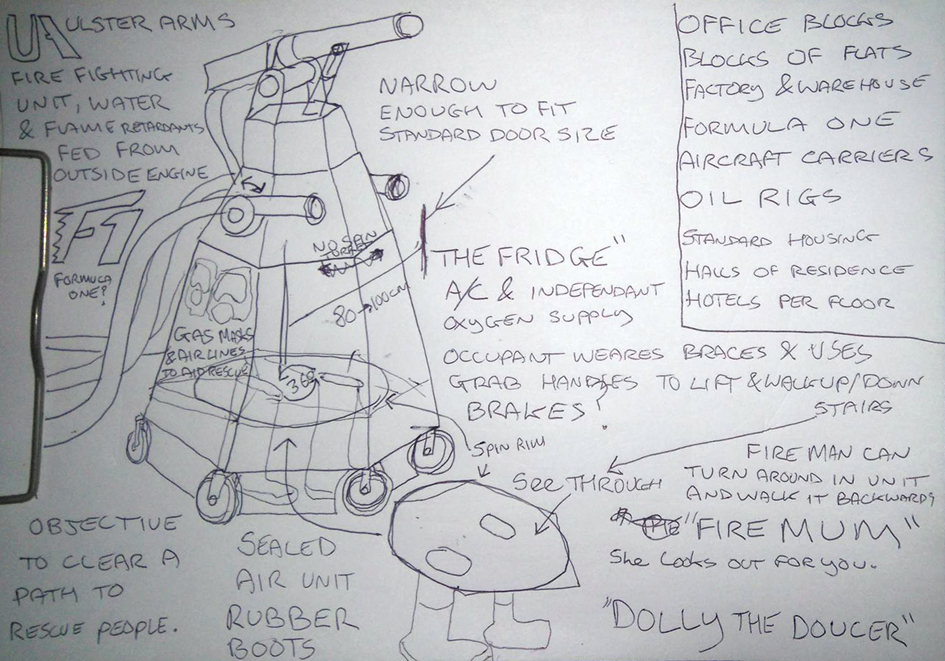 UA ULSTER ARMS
FIRE FIGHTING
UNIT, WATER
& FLAME RETARDANTS
FED FROM
OUTSIDE ENGINE
F1
FORMULA
ONE?
NARROW
ENOUGH TO FIT
STANDARD DOOR SIZE
OFFICE BLOCKS
BLOCKS OF FLATS
FACTORY & WAREHOUSE
FORMULA ONE
AIRCRAFT CARRIERS
OIL RIGS
STANDARD HOUSING
HALLS OF RESIDENCE
HOTELS PER FLOOR
NO SPIN
80→100CM
GAS MASKS
& AIR LINES
TO AID RESCUE
360°
THE FRIDGE"
A/C & INDEPENDANT
OXYGEN SUPPLY
OCCUPANT WEARES BRACES & USES
GRAB HANDLES TO LIFT & WALK UP/DOWN
BRAKES!
STAIRS
SPIN RIM
SEE THROUGH
FIREMAN CAN
TURN AROUND IN UNIT
AND WALK IT BACKWARDS
"FIRE MUM"
She LOOKS OUT FOR YOU.
"DOLLY THE DOUCER"
OBJECTIVE
TO CLEAR A
PATH TO
RESCUE PEOPLE.
SEALED
AIR UNIT
RUBBER
BOOTS